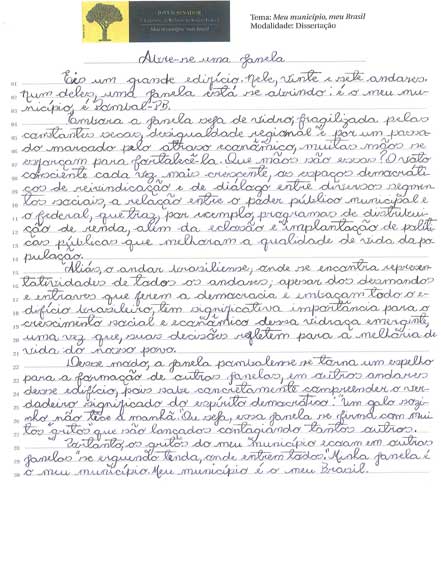 JOVEM SENADOR
Meu município, meu Brasil
Tema: Meu município, meu Brasil
Modalidade: Dissertação
Abre-se uma janela
01 Eis um grande edifício. Nele, vinte e sete andares.
02 Num deles, uma janela está se abrindo: é o meu mu-
03 nicípio, é Pombal-PB.
04 Embora a janela seja de vidro, fragilizada pelas
05 constantes secas, desigualdade regional e por um passa-
06 do marcado pelo atraso econômico, muitas mãos se
07 esforçam para fortalecê-la. Que mãos são essas? O voto
08 consciente cada vez mais crescente, os espaços democráti-
09 cos de reivindicação e de diálogo entre diversos segmen-
10 tos sociais, a relação entre o poder público municipal e
11 o federal, que traz, por exemplo, programas de distribui-
12 ção de renda, além da eclosão e implantação de políti-
13 cas públicas que melhoram a qualidade de vida da po-
14 pulação.
15 Aliás, o andar brasiliense, onde se encontra represen-
16 tatividades de todos os andares, apesar dos desmandos
17 e entraves que ferem a democracia e embaçam todo o e-
18 difício brasileiro, tem significativa importância para o
19 crescimento social e econômico dessa vidraça emergente,
20 uma vez que, suas decisões refletem para a melhoria de
21 vida do nosso povo.
22 Desse modo, a janela pombalense se torna um espelho
23 para a formação de outras janelas, em outros andares
24 desse edifício, pois sabe concretamente compreender o ver-
25 dadeiro significado do espírito democrático: "um galo sozi-
26 nho não tece a manhã." Ou seja, essa janela se firma com mui-
27 tos "gritos" que são lançados contagiando tantos outros.
28 Portanto, os gritos do meu município ecoam em outras
29 janelas "se erguendo tenda, onde entrem todos." Minha janela é
30 o meu município. Meu município é o meu Brasil.